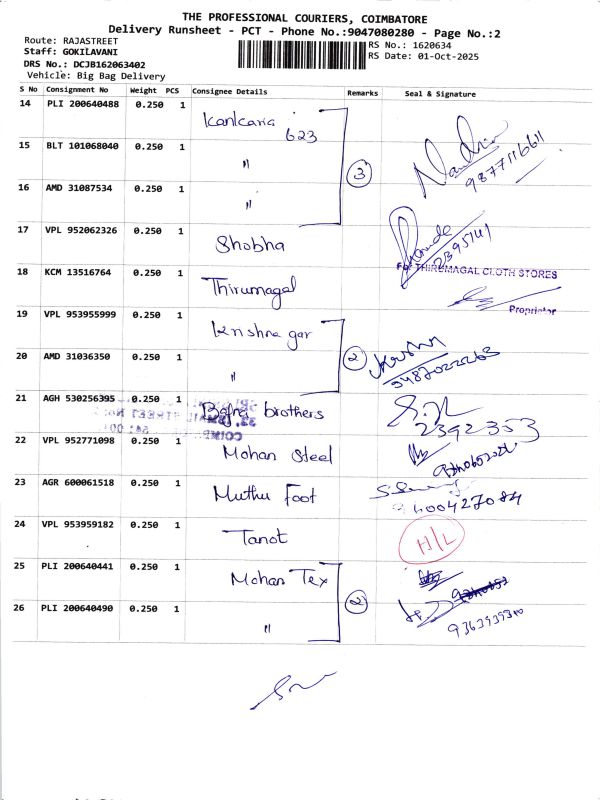 THE PROFESSIONAL COURIERS, COIMBATORE
Delivery Runsheet - PCT - Phone No.:9047080280 - Page No.:2
Route: RAJASTREET
Staff: GOKILAVANI
DRS No.: DCJB162063402
Vehicle: Big Bag Delivery
RS No.: 1620634
RS Date: 01-Oct-2025
S No Consignment No Weight PCS Consignee Details Remarks Seal & Signature
14 PLI 200640488 0.250 1 Kankaria 623
15 BLT 101068040 0.250 1 " 3 9877116611
16 AMD 31087534 0.250 1 "
17 VPL 952062326 0.250 1 Shobha 2395141
18 KCM 13516764 0.250 1 Thirumagal For THIRUMAGAL CLOTH STORES
Proprietor
19 VPL 953955999 0.250 1 Krishna gar
20 AMD 31036350 0.250 1 " 2
21 AGH 530256395 0.250 1 Bafna brothers 2392353
22 VPL 952771098 0.250 1 Mohan Steel
23 AGR 600061518 0.250 1 Muthu Foot
24 VPL 953959182 0.250 1 Tanot H/L
25 PLI 200640441 0.250 1 Mohan Tex
26 PLI 200640490 0.250 1 " 2